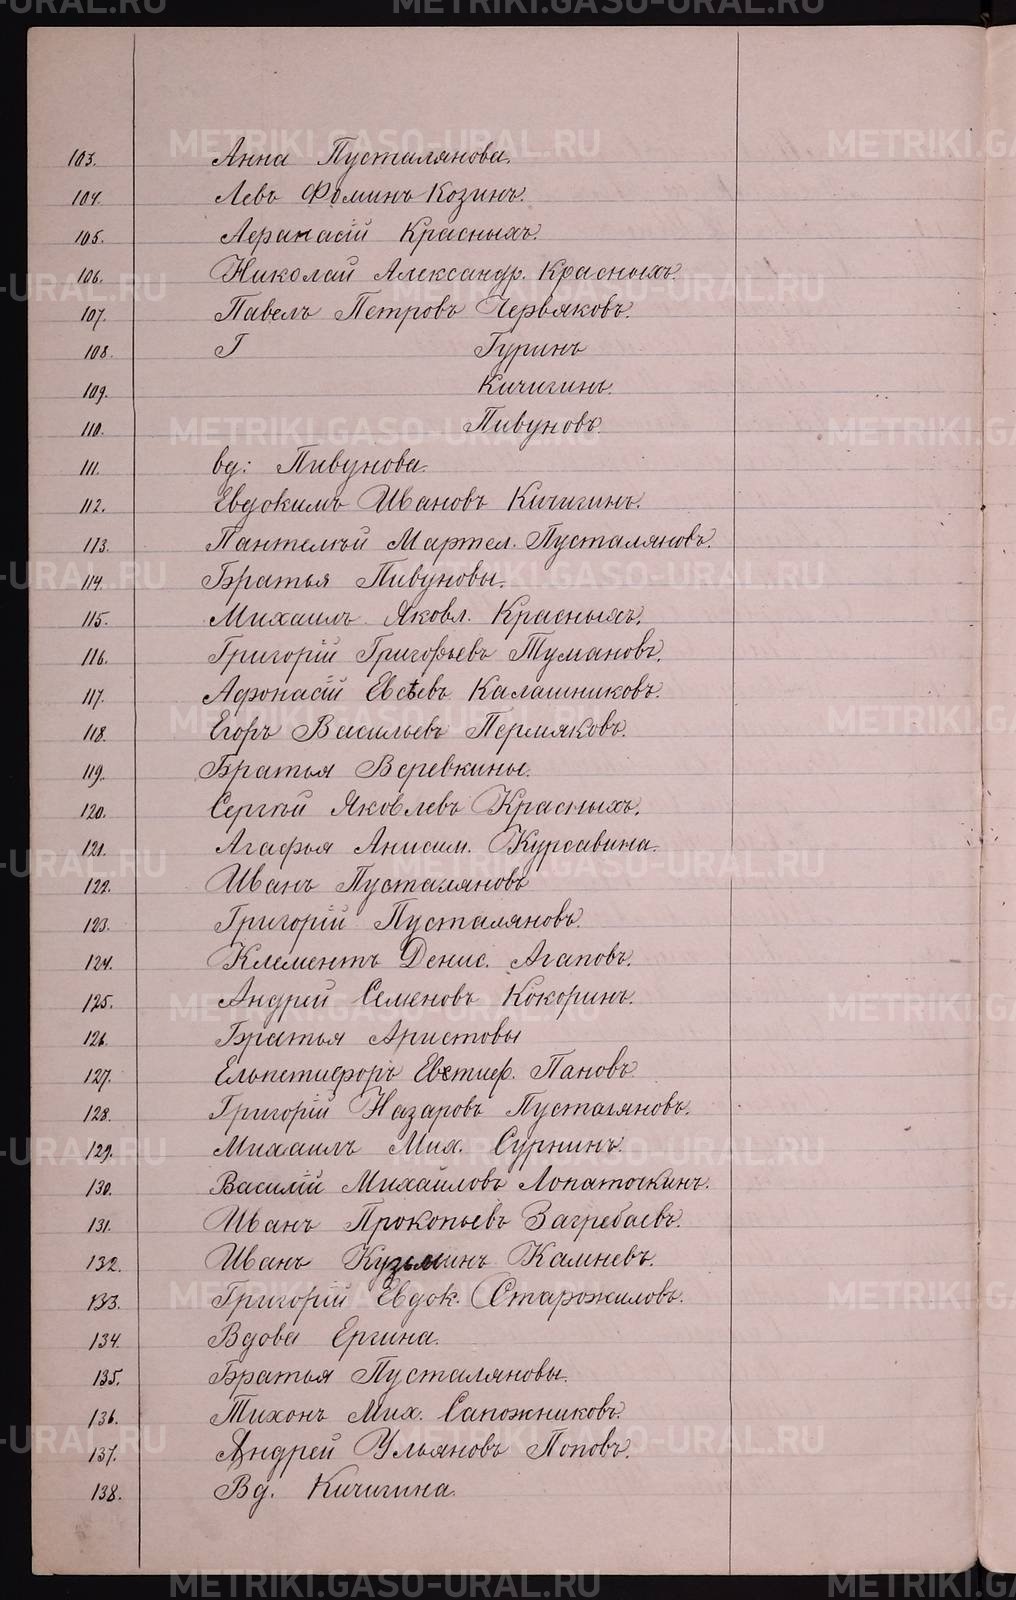 103. Анна Пусталянова.
104. Левъ Ѳоминъ Козинъ.
105. Аѳанасій Красныхъ.
106. Николай Александр. Красныхъ
107. Павелъ Петровъ Червяковъ.
108. Г Гуринъ
109. Кичигинъ.
110. Пивуновъ.
111. вд: Пивунова.
112. Евдокимъ Ивановъ Кичигинъ.
113. Пантелѣй Мартем. Пусталяновъ.
114. Братья Пивуновы.
115. Михаилъ Яковл. Красныхъ.
116. Григорій Григорьевъ Тумановъ.
117. Афонасій Евсѣевъ Калашниковъ.
118. Егоръ Васильевъ Пермяковъ.
119. Братья Веревкины.
120. Сергѣй Яковлевъ Красныхъ.
121. Агафья Анисим.
122. Иванъ Пусталяновъ
123. Григорій Пусталяновъ.
124. Клементъ Денис. Агаповъ.
125. Андрей Семеновъ Кокоринъ.
126. Братья Аристовы
127. Ельпетифоръ Евстиф. Пановъ
128. Григорій Назаровъ Пусталяновъ.
129. Михаилъ Мих. Суринъ.
130. Василій Михайловъ Лопаточкинъ.
131. Иванъ Прокопьевъ Загребаевъ.
132. Иванъ Кузьминъ Камневъ.
133. Григорій Евдок. Старожиловъ.
134. Вдова Ергина.
135. Братья Пусталяновы.
136. Тихонъ Мих. Сапожниковъ.
137. Андрей Ульяновъ Поповъ.
138. Вд. Кичигина.